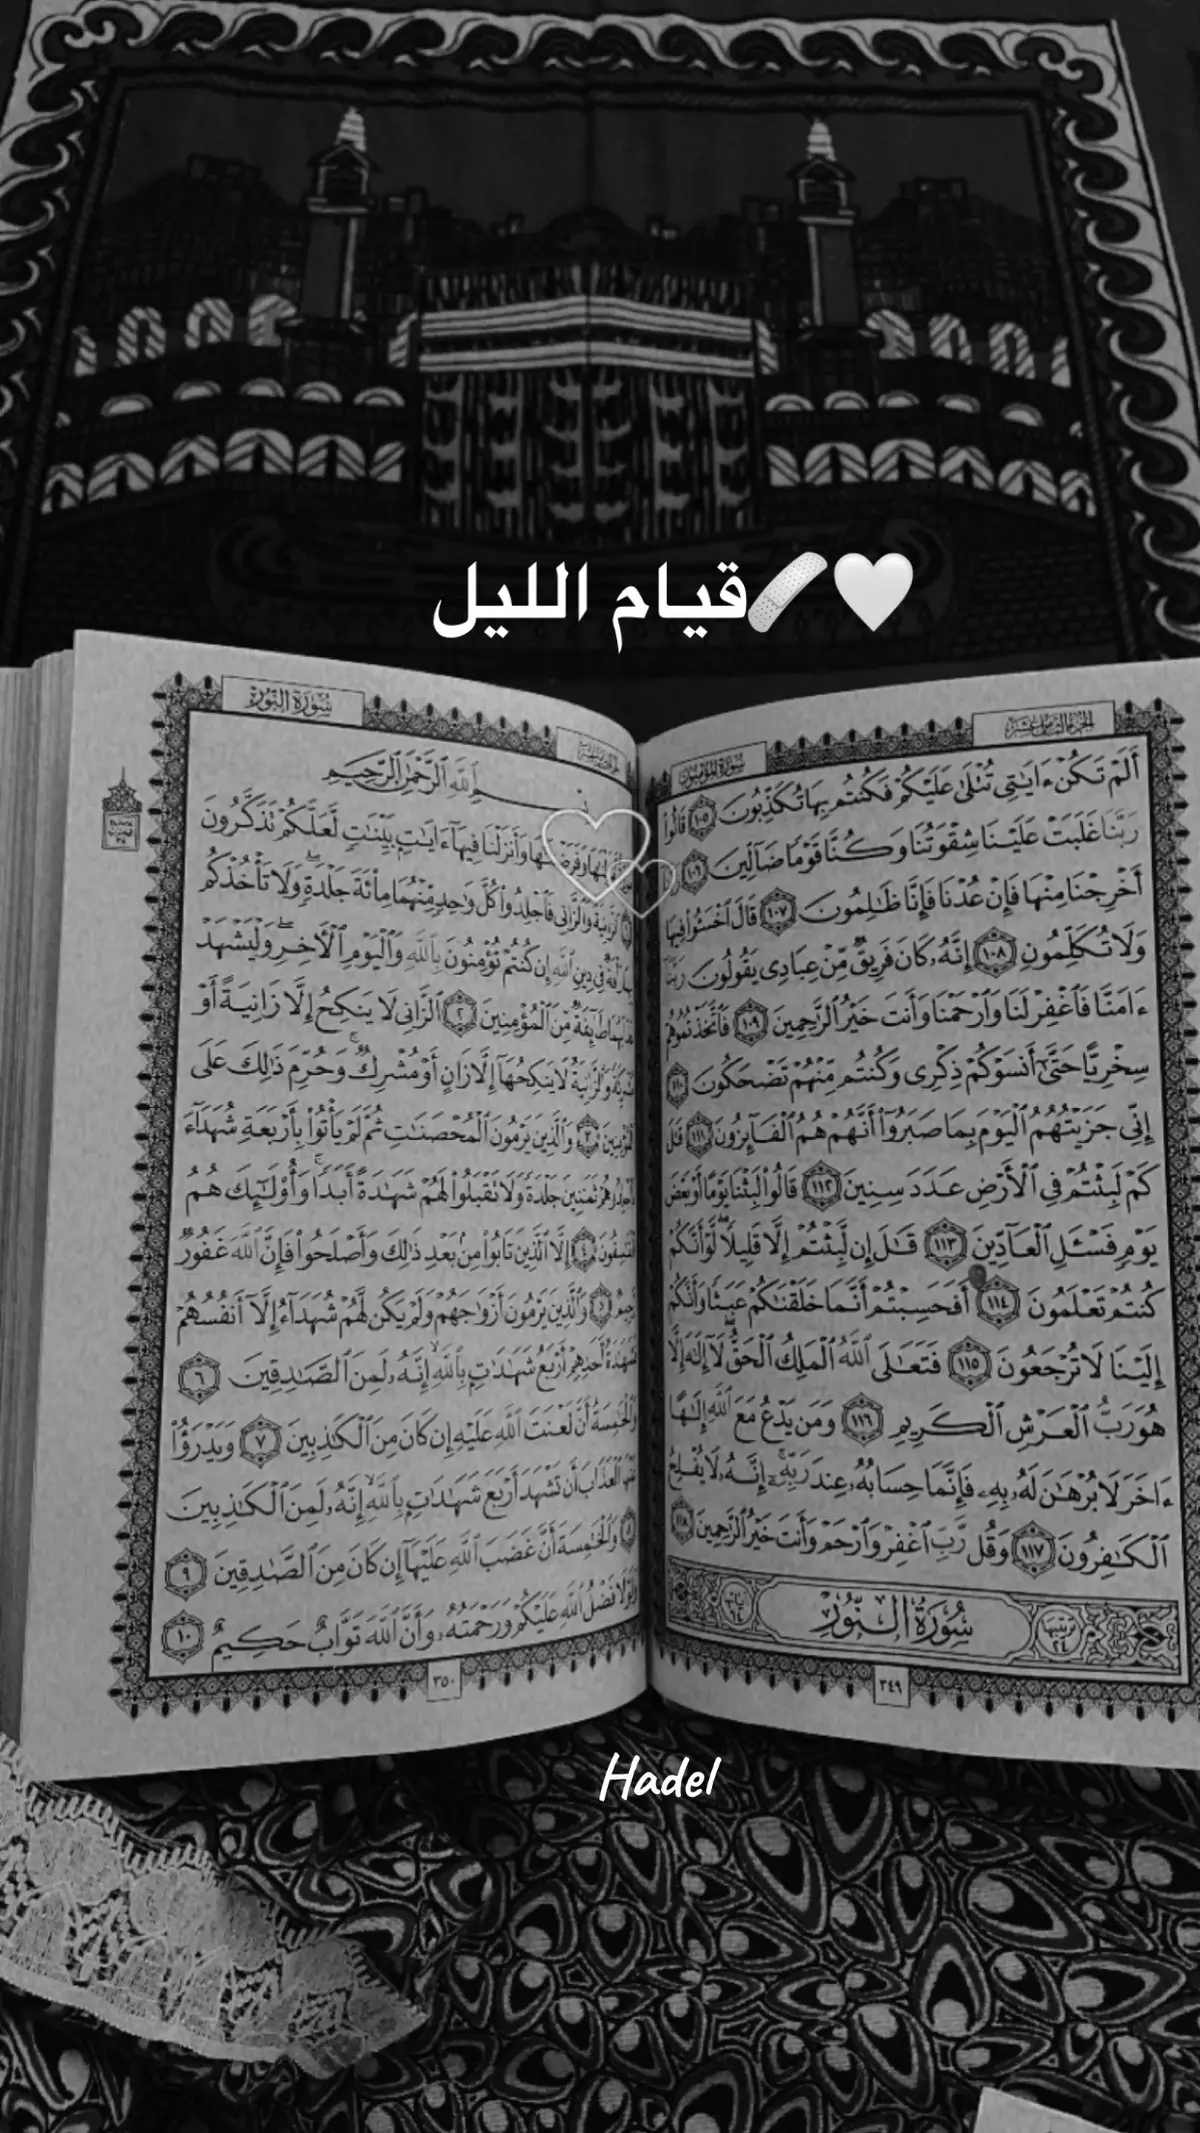 قيام الليل🩹🤍
الجزء الثامن عشر
سورة المؤمنون
أَلَمْ تَكُنْ ءَايَٰتِى تُتْلَىٰ عَلَيْكُمْ فَكُنتُم بِهَا تُكَذِّبُونَ ١٠٥ قَالُوا۟
رَبَّنَا غَلَبَتْ عَلَيْنَا شِقْوَتُنَا وَكُنَّا قَوْمًا ضَآلِّينَ ١٠٦
أَخْرِجْنَا مِنْهَا فَإِنْ عُدْنَا فَإِنَّا ظَٰلِمُونَ ١٠٧ قَالَ ٱخْسَـُٔوا۟ فِيهَا
وَلَا تُكَلِّمُونِ ١٠٨ إِنَّهُۥ كَانَ فَرِيقٌ مِّنْ عِبَادِى يَقُولُونَ رَبَّنَآ
ءَامَنَّا فَٱغْفِرْ لَنَا وَٱرْحَمْنَا وَأَنتَ خَيْرُ ٱلرَّٰحِمِينَ ١٠٩ فَٱتَّخَذْتُمُوهُمْ
سِخْرِيًّا حَتَّىٰٓ أَنسَوْكُمْ ذِكْرِى وَكُنتُم مِّنْهُمْ تَضْحَكُونَ ١١٠
إِنِّى جَزَيْتُهُمُ ٱلْيَوْمَ بِمَا صَبَرُوٓا۟ أَنَّهُمْ هُمُ ٱلْفَآئِزُونَ ١١١ قَٰلَ
كَمْ لَبِثْتُمْ فِى ٱلْأَرْضِ عَدَدَ سِنِينَ ١١٢ قَالُوا۟ لَبِثْنَا يَوْمًا أَوْ بَعْضَ
يَوْمٍ فَسْـَٔلِ ٱلْعَآدِّينَ ١١٣ قَٰلَ إِن لَّبِثْتُمْ إِلَّا قَلِيلًا لَّوْ أَنَّكُمْ
كُنتُمْ تَعْلَمُونَ ١١٤ أَفَحَسِبْتُمْ أَنَّمَا خَلَقْنَٰكُمْ عَبَثًا وَأَنَّكُمْ
إِلَيْنَا لَا تُرْجَعُونَ ١١٥ فَتَعَٰلَى ٱللَّهُ ٱلْمَلِكُ ٱلْحَقُّ لَآ إِلَٰهَ إِلَّا
هُوَ رَبُّ ٱلْعَرْشِ ٱلْكَرِيمِ ١١٦ وَمَن يَدْعُ مَعَ ٱللَّهِ إِلَٰهًا
ءَاخَرَ لَا بُرْهَٰنَ لَهُۥ بِهِۦ فَإِنَّمَا حِسَابُهُۥ عِندَ رَبِّهِۦٓ إِنَّهُۥ لَا يُفْلِحُ
ٱلْكَٰفِرُونَ ١١٧ وَقُل رَّبِّ ٱغْفِرْ وَٱرْحَمْ وَأَنتَ خَيْرُ ٱلرَّٰحِمِينَ ١١٨
ترتيبها ٢٤ سُورَةُ النُّورِ ٦٤
٣٤٩
سورة النور
بِسْمِ ٱللَّهِ ٱلرَّحْمَٰنِ ٱلرَّحِيمِ
وَأَنزَلْنَا فِيهَآ ءَايَٰتٍۭ بَيِّنَٰتٍ لَّعَلَّكُمْ تَذَكَّرُونَ
وَٱلزَّانِى فَٱجْلِدُوا۟ كُلَّ وَٰحِدٍ مِّنْهُمَا مِا۟ئَةَ جَلْدَةٍ وَلَا تَأْخُذْكُم
رَأْفَةٌ فِى دِينِ ٱللَّهِ إِن كُنتُمْ تُؤْمِنُونَ بِٱللَّهِ وَٱلْيَوْمِ ٱلْءَاخِرِ وَلْيَشْهَدْ
طَآئِفَةٌ مِّنَ ٱلْمُؤْمِنِينَ ٢ ٱلزَّانِى لَا يَنكِحُ إِلَّا زَانِيَةً أَوْ
لَا يَنكِحُهَآ إِلَّا زَانٍ أَوْ مُشْرِكٌ وَحُرِّمَ ذَٰلِكَ عَلَى
ٱلْمُؤْمِنِينَ ٣ وَٱلَّذِينَ يَرْمُونَ ٱلْمُحْصَنَٰتِ ثُمَّ لَمْ يَأْتُوا۟ بِأَرْبَعَةِ شُهَدَآءَ
فَٱجْلِدُوهُمْ ثَمَٰنِينَ جَلْدَةً وَلَا تَقْبَلُوا۟ لَهُمْ شَهَٰدَةً أَبَدًا وَأُو۟لَٰٓئِكَ هُمُ
ٱلْفَٰسِقُونَ ٤ إِلَّا ٱلَّذِينَ تَابُوا۟ مِنۢ بَعْدِ ذَٰلِكَ وَأَصْلَحُوا۟ فَإِنَّ ٱللَّهَ غَفُورٌ
رَّحِيمٌ ٥ وَٱلَّذِينَ يَرْمُونَ أَزْوَٰجَهُمْ وَلَمْ يَكُن لَّهُمْ شُهَدَآءُ إِلَّآ أَنفُسُهُمْ
فَشَهَٰدَةُ أَحَدِهِمْ أَرْبَعُ شَهَٰدَٰتٍۭ بِٱللَّهِ إِنَّهُۥ لَمِنَ ٱلصَّٰدِقِينَ ٦
وَٱلْخَٰمِسَةُ أَنَّ لَعْنَتَ ٱللَّهِ عَلَيْهِ إِن كَانَ مِنَ ٱلْكَٰذِبِينَ ٧ وَيَدْرَؤُا۟
عَنْهَا ٱلْعَذَابَ أَن تَشْهَدَ أَرْبَعَ شَهَٰدَٰتٍۭ بِٱللَّهِ إِنَّهُۥ لَمِنَ ٱلْكَٰذِبِينَ
٨ وَٱلْخَٰمِسَةَ أَنَّ غَضَبَ ٱللَّهِ عَلَيْهَآ إِن كَانَ مِنَ ٱلصَّٰدِقِينَ ٩
وَلَوْلَا فَضْلُ ٱللَّهِ عَلَيْكُمْ وَرَحْمَتُهُۥ وَأَنَّ ٱللَّهَ تَوَّابٌ حَكِيمٌ ١٠
٣٥٠
Hadel